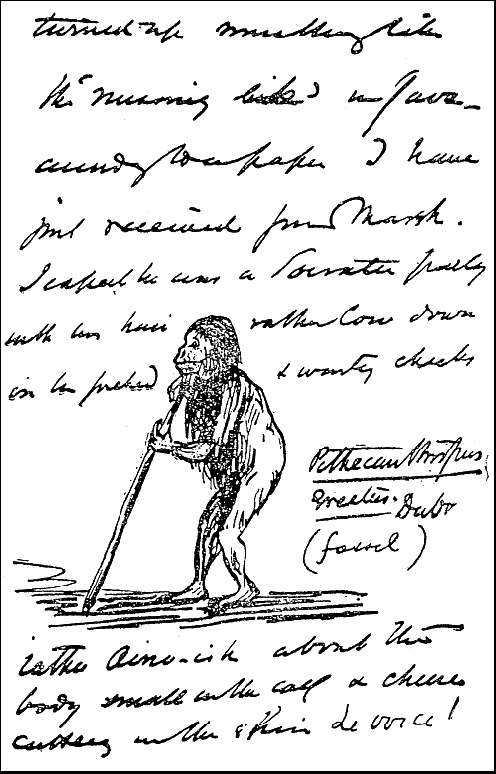 turned up something like
the 'missing link' in Java –
according to a paper I have
just received from Marsh.
I expect he was a Socratic party
with his hair rather low down
on his forehead & warty cheeks
Pithecanthropus
erectus. Dubo
(fossil)
rather Aino-ish about the
body small in the calf & cheese
cutting in the shin Le voici!